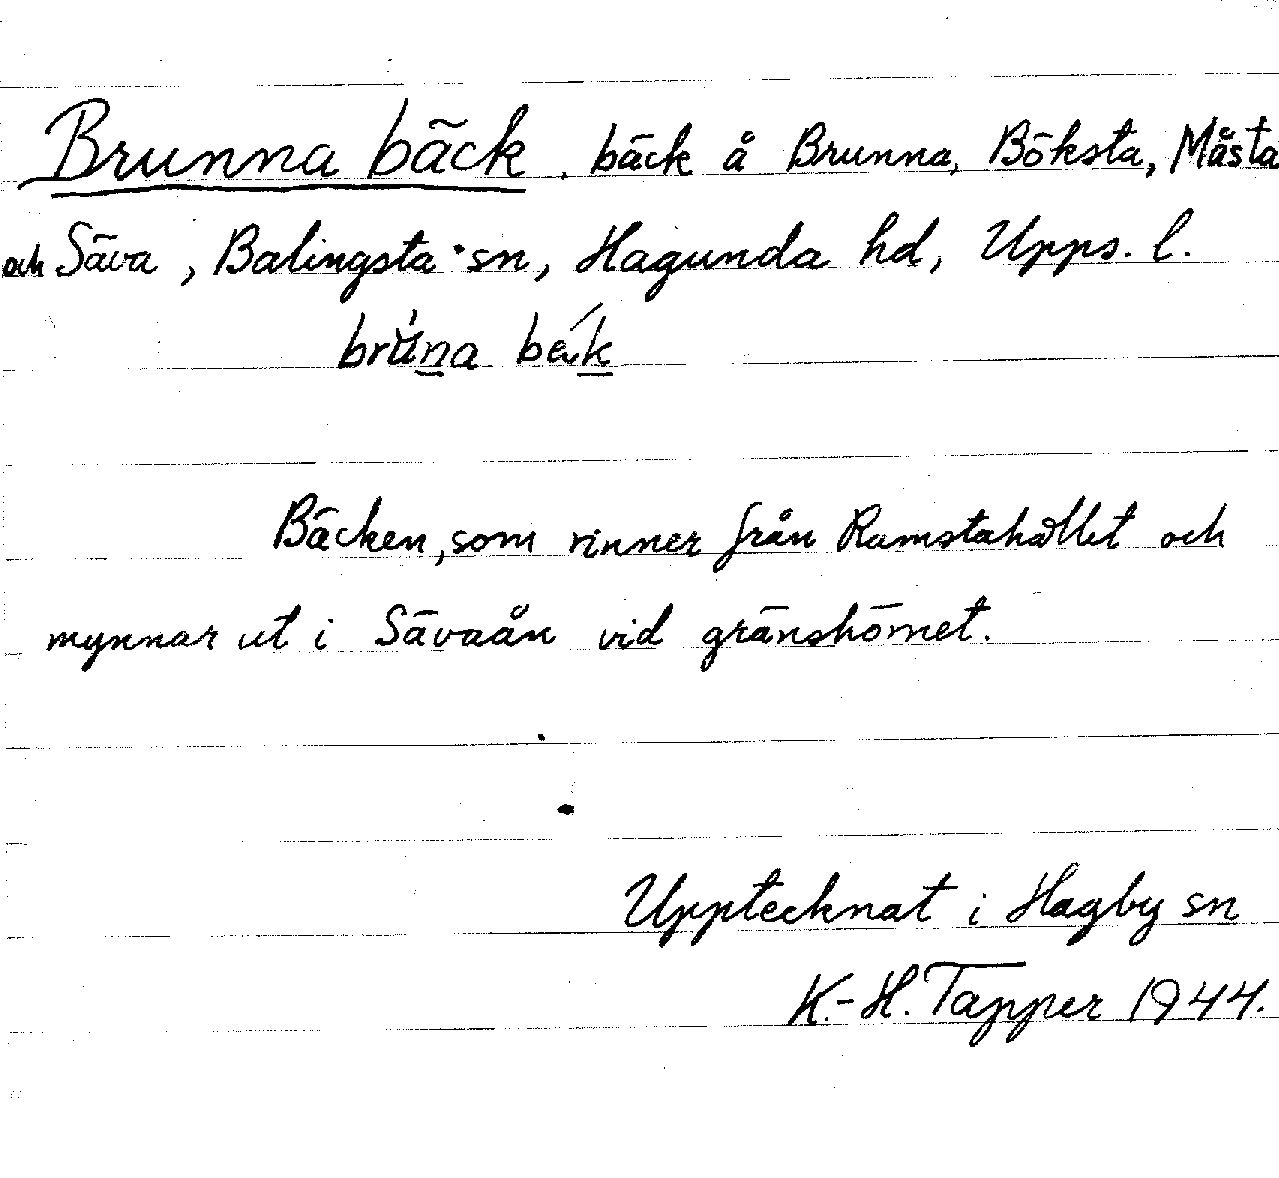 Brunna bäck, bäck å Brunna, Böksta, Måsta
och Säva, Balingsta sn, Hagunda hd, Upps. l.
Bäcken, som rinner från Ramstahållet och
mynnar ut i Sävaån vid gränshörnet.
Upptecknat i Hagby sn
K.-H. Tapper 1944.